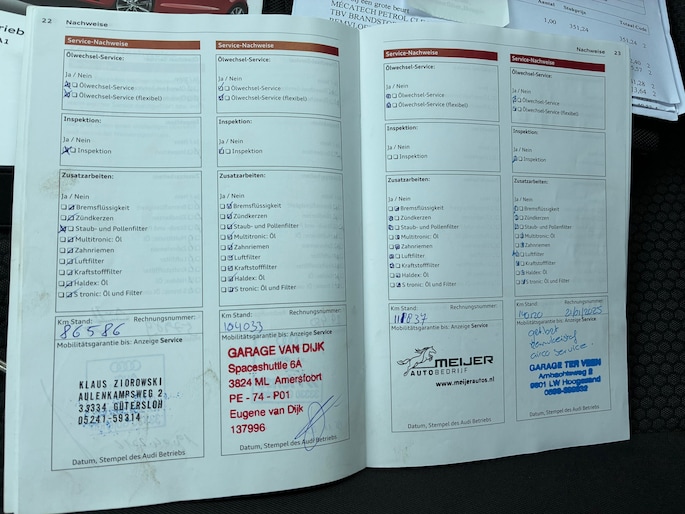 22 Nachweise
Service-Nachweise
Ölwechsel-Service:
Ja / Nein
Ölwechsel-Service
Ölwechsel-Service (flexibel)
Inspektion:
Ja / Nein
Inspektion
Zusatzarbeiten:
Ja / Nein
Bremsflüssigkeit
Zündkerzen
Staub- und Pollenfilter
Multitronic: Öl
Zahnriemen
Luftfilter
Kraftstofffilter
Haldex: Öl
S tronic: Öl und Filter
Km Stand: Rechnungsnummer:
86586
Mobilitätsgarantie bis: Anzeige Service
KLAUS ZIOROWSKI
AULENKAMPSWEG 2
33334 GÜTERSLOH
05241-59314
Datum, Stempel des Audi Betriebs
Service-Nachweise
Ölwechsel-Service:
Ja / Nein
Ölwechsel-Service
Ölwechsel-Service (flexibel)
Inspektion:
Ja / Nein
Inspektion
Zusatzarbeiten:
Ja / Nein
Bremsflüssigkeit
Zündkerzen
Staub- und Pollenfilter
Multitronic: Öl
Zahnriemen
Luftfilter
Kraftstofffilter
Haldex: Öl
S tronic: Öl und Filter
Km Stand: Rechnungsnummer:
104033
Mobilitätsgarantie bis: Anzeige Service
GARAGE VAN DIJK
Spaceshuttle 6A
3824 ML Amersfoort
PE - 74 - P01
Eugene van Dijk
137996
Datum, Stempel des Audi Betriebs
Nachweise 23
Service-Nachweise
Ölwechsel-Service:
Ja / Nein
Ölwechsel-Service
Ölwechsel-Service (flexibel)
Inspektion:
Ja / Nein
Inspektion
Zusatzarbeiten:
Ja / Nein
Bremsflüssigkeit
Zündkerzen
Staub- und Pollenfilter
Multitronic: Öl
Zahnriemen
Luftfilter
Kraftstofffilter
Haldex: Öl
S tronic: Öl und Filter
Km Stand: Rechnungsnummer:
111837
Mobilitätsgarantie bis: Anzeige Service
MEIJER
AUTOBEDRIJF
www.meijerautos.nl
Datum, Stempel des Audi Betriebs
Service-Nachweise
Ölwechsel-Service:
Ja / Nein
Ölwechsel-Service
Ölwechsel-Service (flexibel)
Inspektion:
Ja / Nein
Inspektion
Zusatzarbeiten:
Ja / Nein
Bremsflüssigkeit
Zündkerzen
Staub- und Pollenfilter
Multitronic: Öl
Zahnriemen
Luftfilter
Kraftstofffilter
Haldex: Öl
S tronic: Öl und Filter
Km Stand: Rechnungsnummer:
Mobilitätsgarantie bis: Anzeige Service
airco service.
GARAGE TER VEEN
9601 LW Hoogezand
Datum, Stempel des Audi Betriebs
rieb
A1
een grote beurt
MECATECH PETROL
TBV BRANDSTO
Aantal Stukprijs Totaal
1,00 351,24 351,24 2